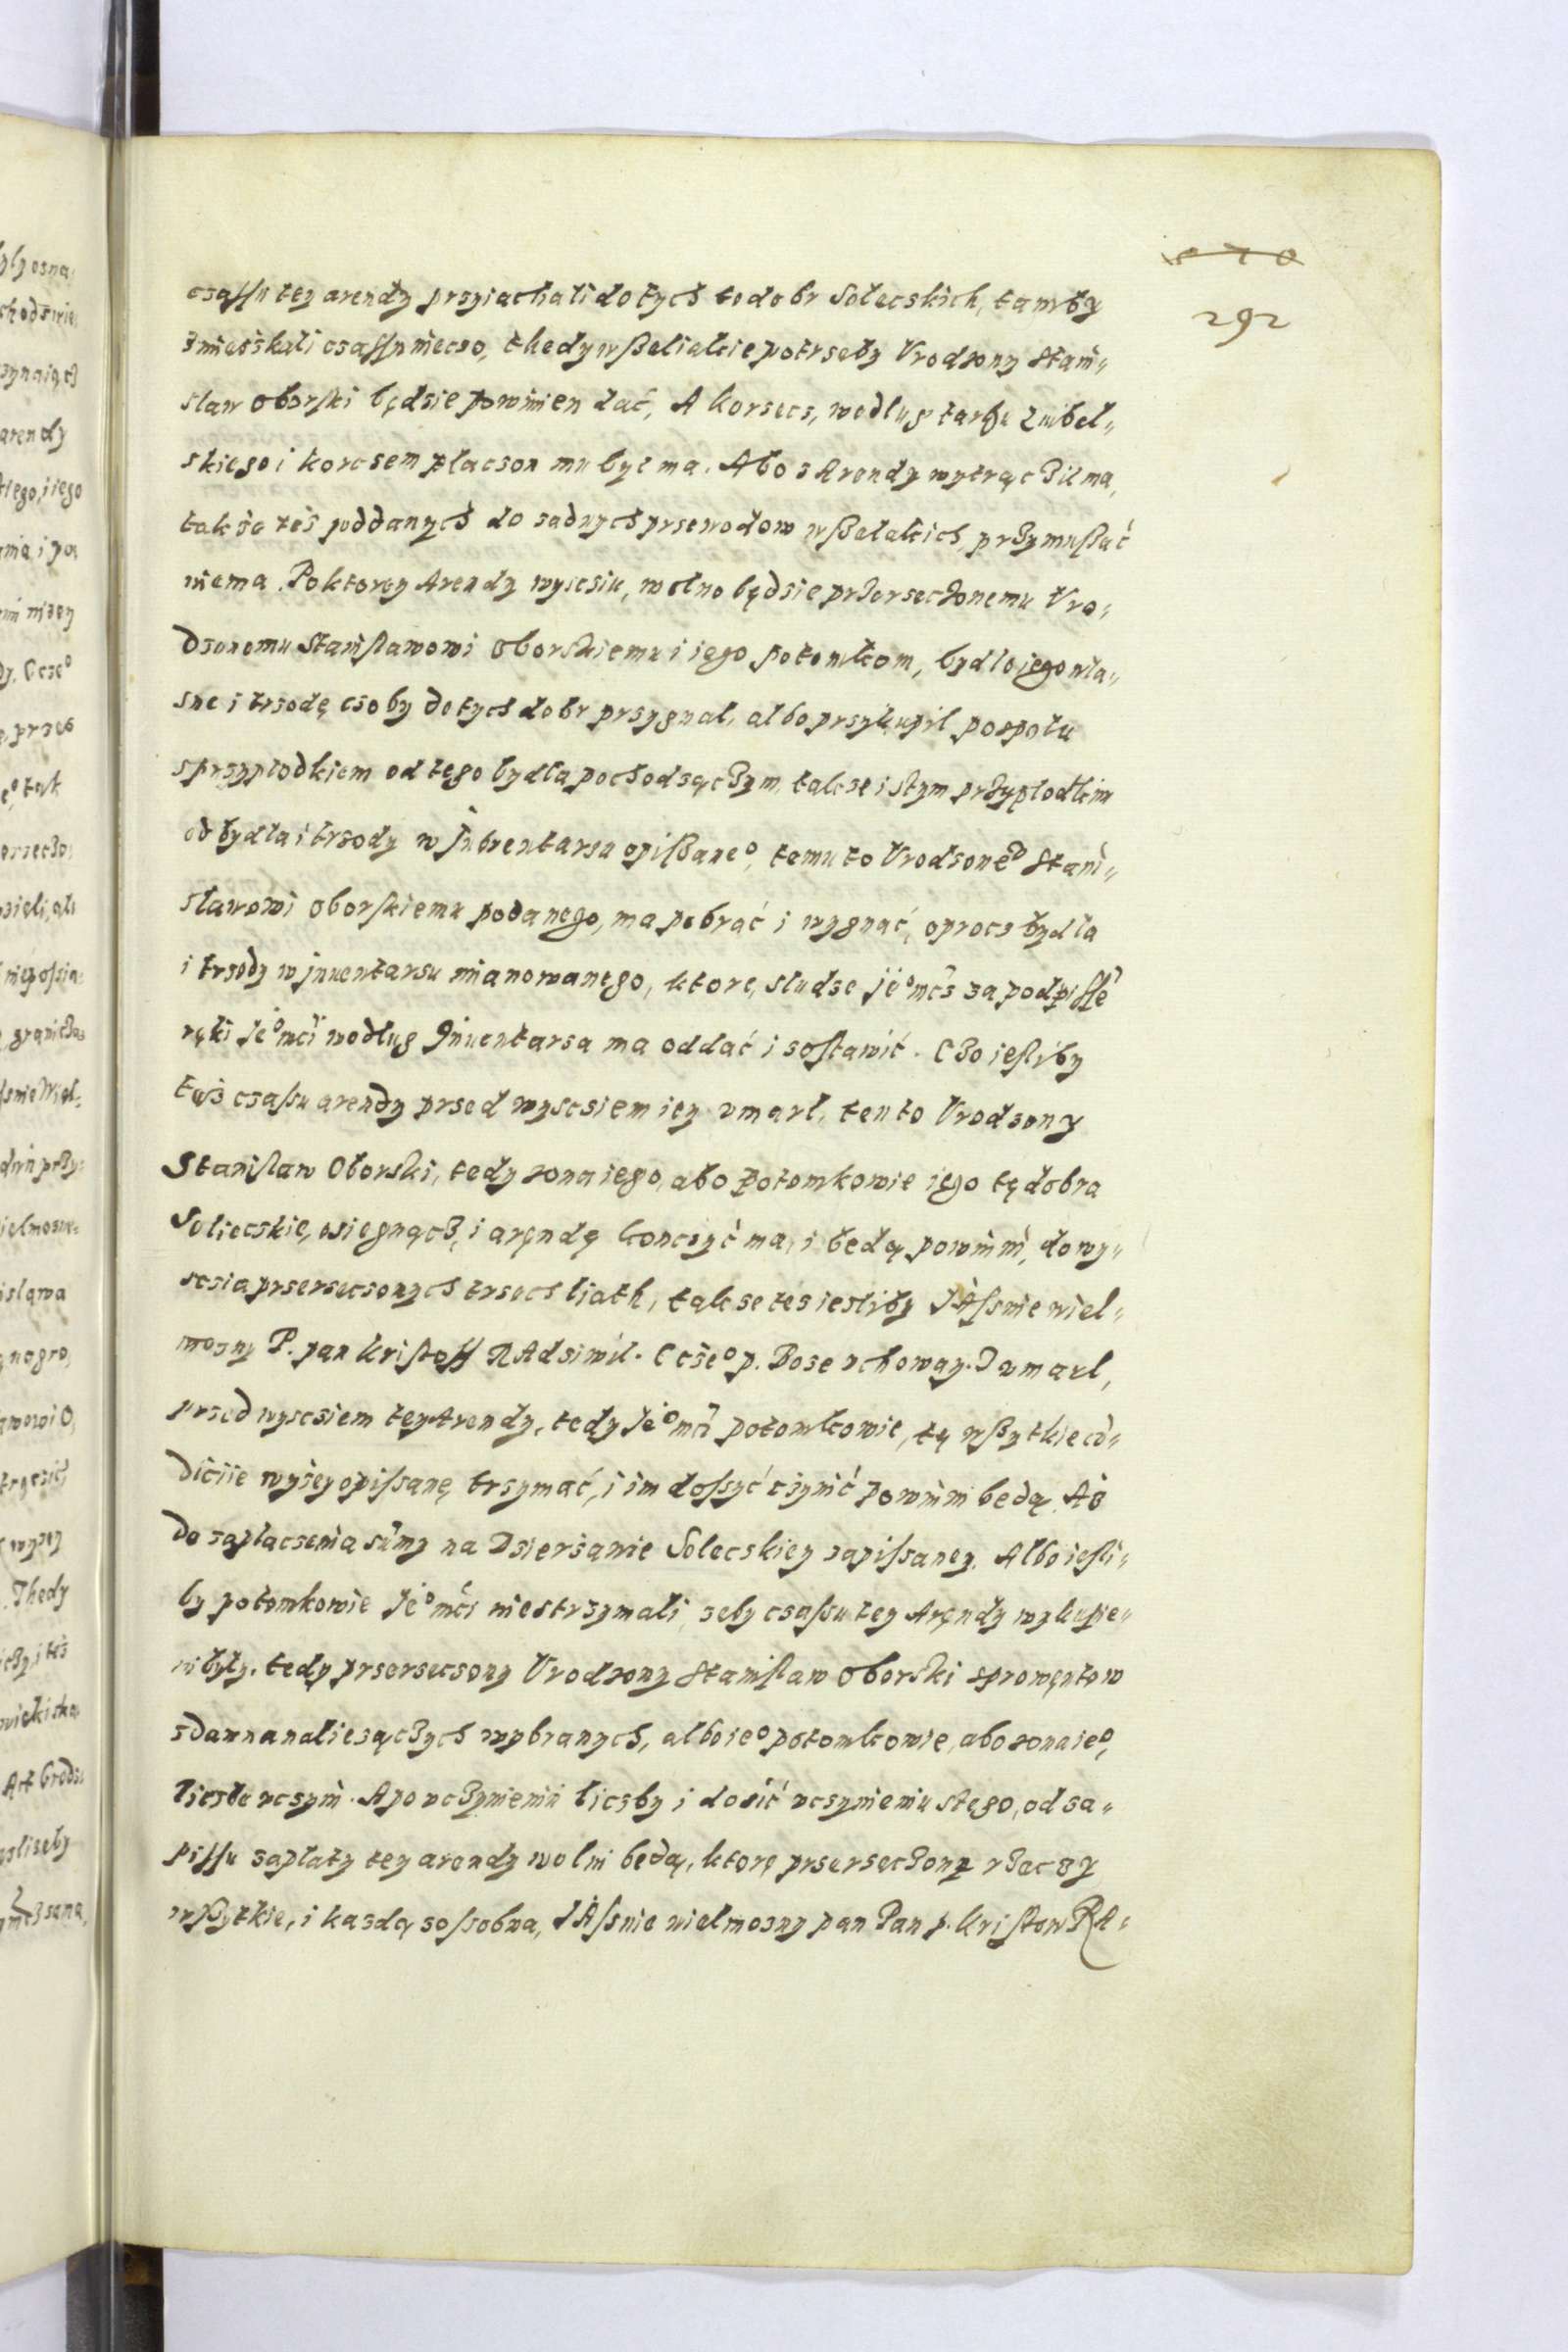 292
czassu tey arendy przyiachali do tych to dobr Solecskich, tamby
zmieszkali czassu nieczo, thedy wszeliakie potrzeby Vrodzony Stani„
slaw Oborski będzie powinien dać, A korzecz, wedlug targu Lubel„
skiego i korczem płaczon mu być ma. Abo z Arendy wytrącził ma,
takze też poddanych do zadnych przewodow wszelakich przymuszać
niema. Po ktorey Arendy wysciu, wolno będzie przerzeczonemu Vro„
dzonemu Stanisławowi Oborskiemu i iego potomkom, bydlo jego wla„
sne i trzodę czoby do tych dobr przygnał, albo przykupil pospolu
s przyplodkiem od tego bydła pochodzączym, takze i z tym przyplodkim
od bydła i trzody w Inwentarzu opiszaneº, temu to Vrodzoneº Stani„
sławowi Oborskiemu podanego, ma pobrać i wygnać, oprocz bydla
i trzody w jnuentarzu mianowanego, ktore, sludze jeºmcz za podpissẽ
ręki jeºmci wedlug Inuentarza ma oddać i zostawić. Czo iesliby
też czassu arendy przed wysciem iey vmarł, ten to Vrodzony
Stanisław Oborski, tedy zona iego, abo potomkowie iego tę dobra
Soliecskię, osiegnącz, i aręndę konczyć ma, i bedą powinni, do wy„
scia przerzeczonych trzech liath, takze też iesliby JAsnie wiel„
mozny P. pan Kristoff RAdziwil. Ccżeº p. Boze vchoway. J vmarł,
przed wysciem tey Arendy, tedy Jeºmci potomkowie, tę wszytkie co„
diciie wyżey opissanę, trzymać, i im dossyć czynić powinni bedą. Aż
do zaplaczenia sumy na Dzierżawie Soleczkiey zapissaney. Albo iesli„
by potomkowie Jeºmci niestrzymali, zeby czassu tey Aręndy wykupie„
ni byly. tedy przerzeczony Vrodzony Stanisław Oborski z prowentow
zdawna naliezączych wybranych, albo ieº potomkowie, abo zona ieº,
liczbę vczyni. A po vczynieniu liczby i dosić vczynieniu stego, od za„
pissu zaplaty tey arendy wolni bedą, ktorę przerzeczony rzeczy
wszytkie, i kazdą z ossobna, JAsnie wielmozny pan Pan p. Kristow RA„